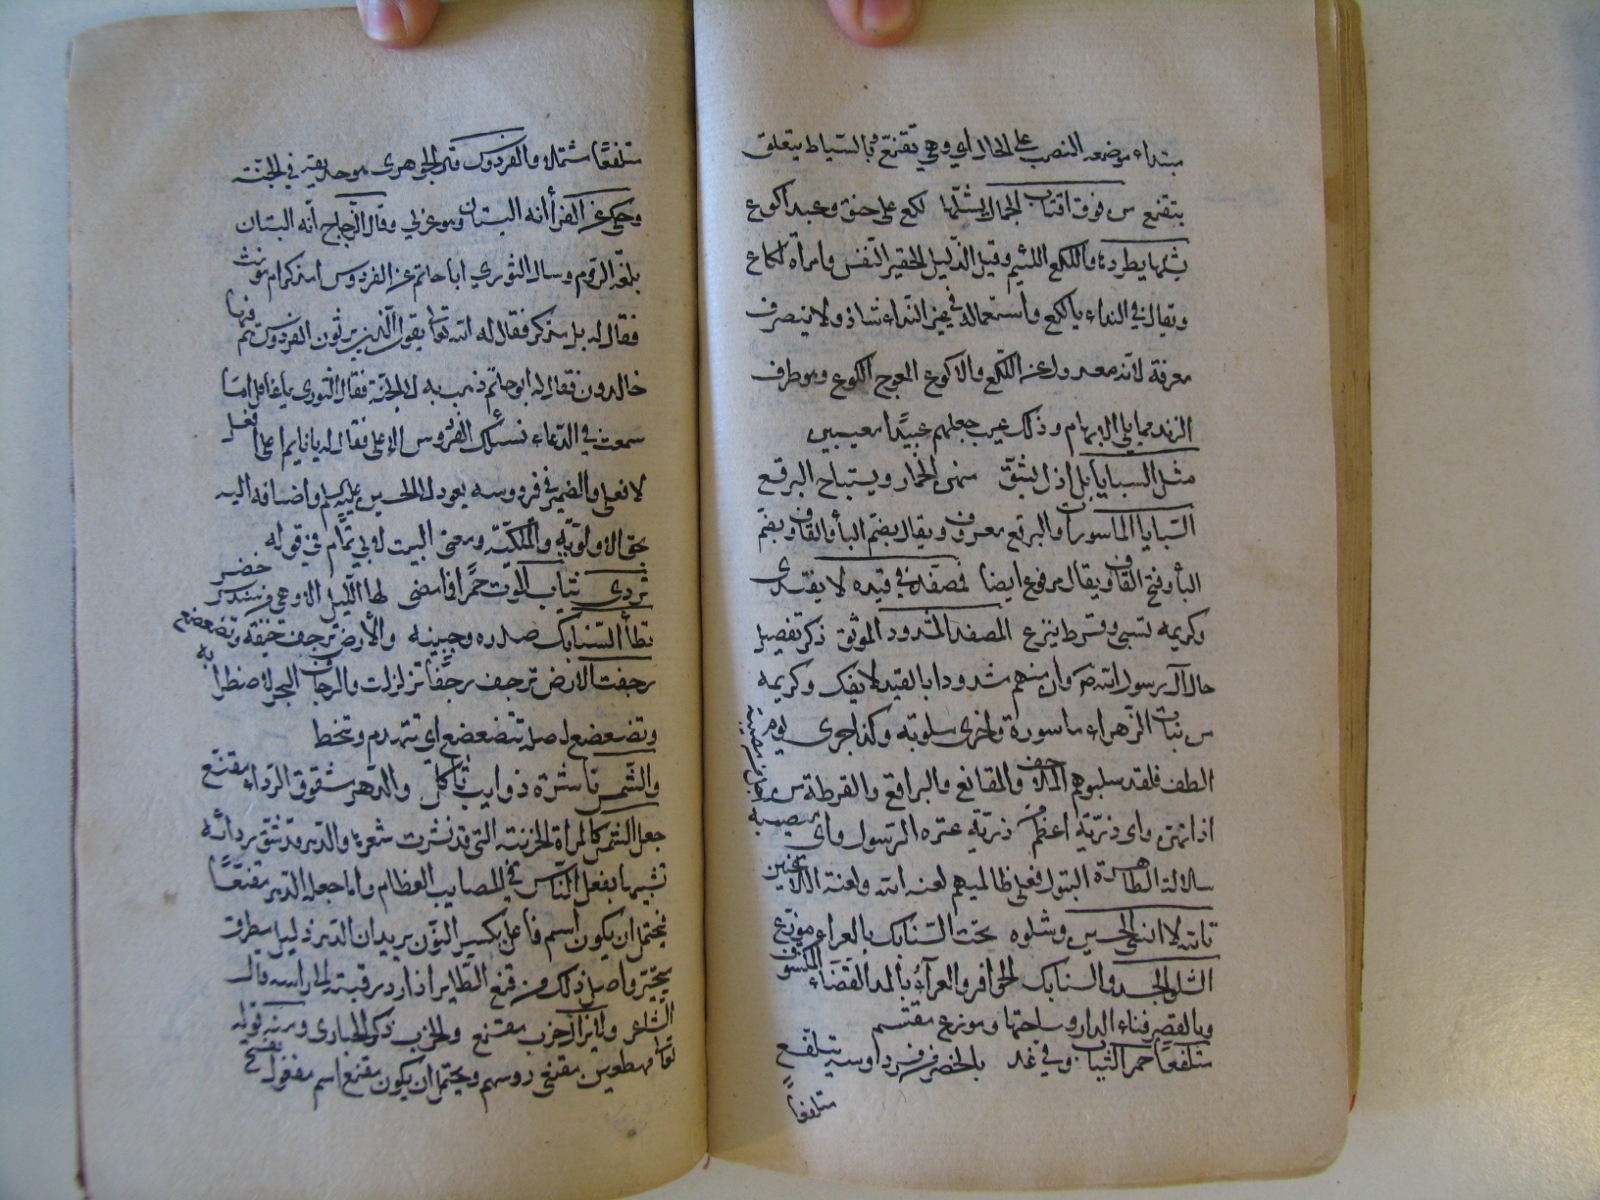 مبتداء موضعه النصب على الحال اي وهي تقنع وبالسياط يتعلق
بتقنع من فوق اقتاب الجمال يشلّها لكع على حنق وعبد اكوع
يشلها يطردها واللكع اللئيم وقيل الذليل الحقير النفس وامرأة لكاع
ويقال في النداء يا لكع واستعماله في غير النداء شاذ ولا ينصرف
معرفة لانه معدول عن اللكع والاكوع المعوج الكوع وهو طرف
الزند مما يلي الابهام وذلك عيب جعلهم عبيدا معيبين
مثل السبايا بل اذل يشق منهن الخمار ويستباح البرقع
السبايا المأسورات والبرقع معروف ويقال بضم الباء والقاف وبضم
الباء وفتح القاف ويقال برقوع ايضا فمصفد في قيده لا يفتدى
وكريمة تسبى وقرط ينزع المصفد المشدود الموثق ذكر تفصيل
حال آل رسول الله وان منهم مشدودا بالقيد لا يفك وكريمة
من بنات الزهراء مأسورة واخرى مسلوبة وكذا جرى يوم
الطف فلقد سلبوهم الملاحف والمقانع والبراقع والقرطة من
اذانهن واي ذرية اعظم من ذرية عترة الرسول واي مصيبة
سلالة الطاهرة البتول فعلى ظالميهم لعنة الله ولعنة اللاعنين
تالله لا انسى الحسين وشلوه تحت السنابك بالعراء موزع
الشلو الجسد والسنابك الحوافر والعراء بالمد الفضاء المكشوف
وبالقصر فناء الدار وساحتها وموزع مقتسم
متلفعا حمر الثياب وفي غد بالخضر من فردوسه يتلفع
متلفعاً
متلفعًا مشتملا والفردوس قال الجوهري هو حديقة في الجنة
وحكى عن الفرا أنه البستان وهو عربي وقال الزجاج انه البستان
بلغة الروم وسال الثوري ابا حاتم عن الفردوس امذكر ام مونث
فقال له بل مذكر فقال له الله تعالى يقول الذين يرثون الفردوس هم فيها
خالدون فقال له ابو حاتم ذهب به الى الجنة فقال الثوري يا غافل اما
سمعت في الدعاء نسئلك الفردوس الاعلى فقال له يا نايم اعلى افعل
لا فعلى والضمير في فردوسه يعود الى الحسين عليه السلم واضافه اليه
بحق الاولوية والملكية ومعنى البيت لابي تمام في قوله
تردى ثياب الموت حمرا فما مضى لها الليل الا وهي من سندس خضر
تطأ السنابك صدره وجبينه والارض ترجف خيفة وتضعضع
رجفت الارض ترجف رجفا تزلزلت والرجاف البحر لاضطرابه
وتضعضع اصله تتضعضع اي تتهدم وتنحط
والشمس ناشرة ذوايب ثاكل والدهر مشقوق الرداء مقنع
جعل الشمس كالمراة الحزينة التي قد نشرت شعرها والدهر قد شق ردائه
تشبيها بفعل الناس في المصايب العظام واما جعله الدهر مقنعًا
فيحتمل ان يكون اسم فاعل بكسر النون يريد ان الدهر ذليل مطرق
متحير واصل ذلك من قنع الطاير اذا رد رقبته الى راسه قال
الشاعر ولا يزال خرب مقنع والخرب ذكر الحبارى ومنه قوله
تعالى مهطعين مقنعي روسهم ويحتمل ان يكون مقنع اسم مفعول بفتح